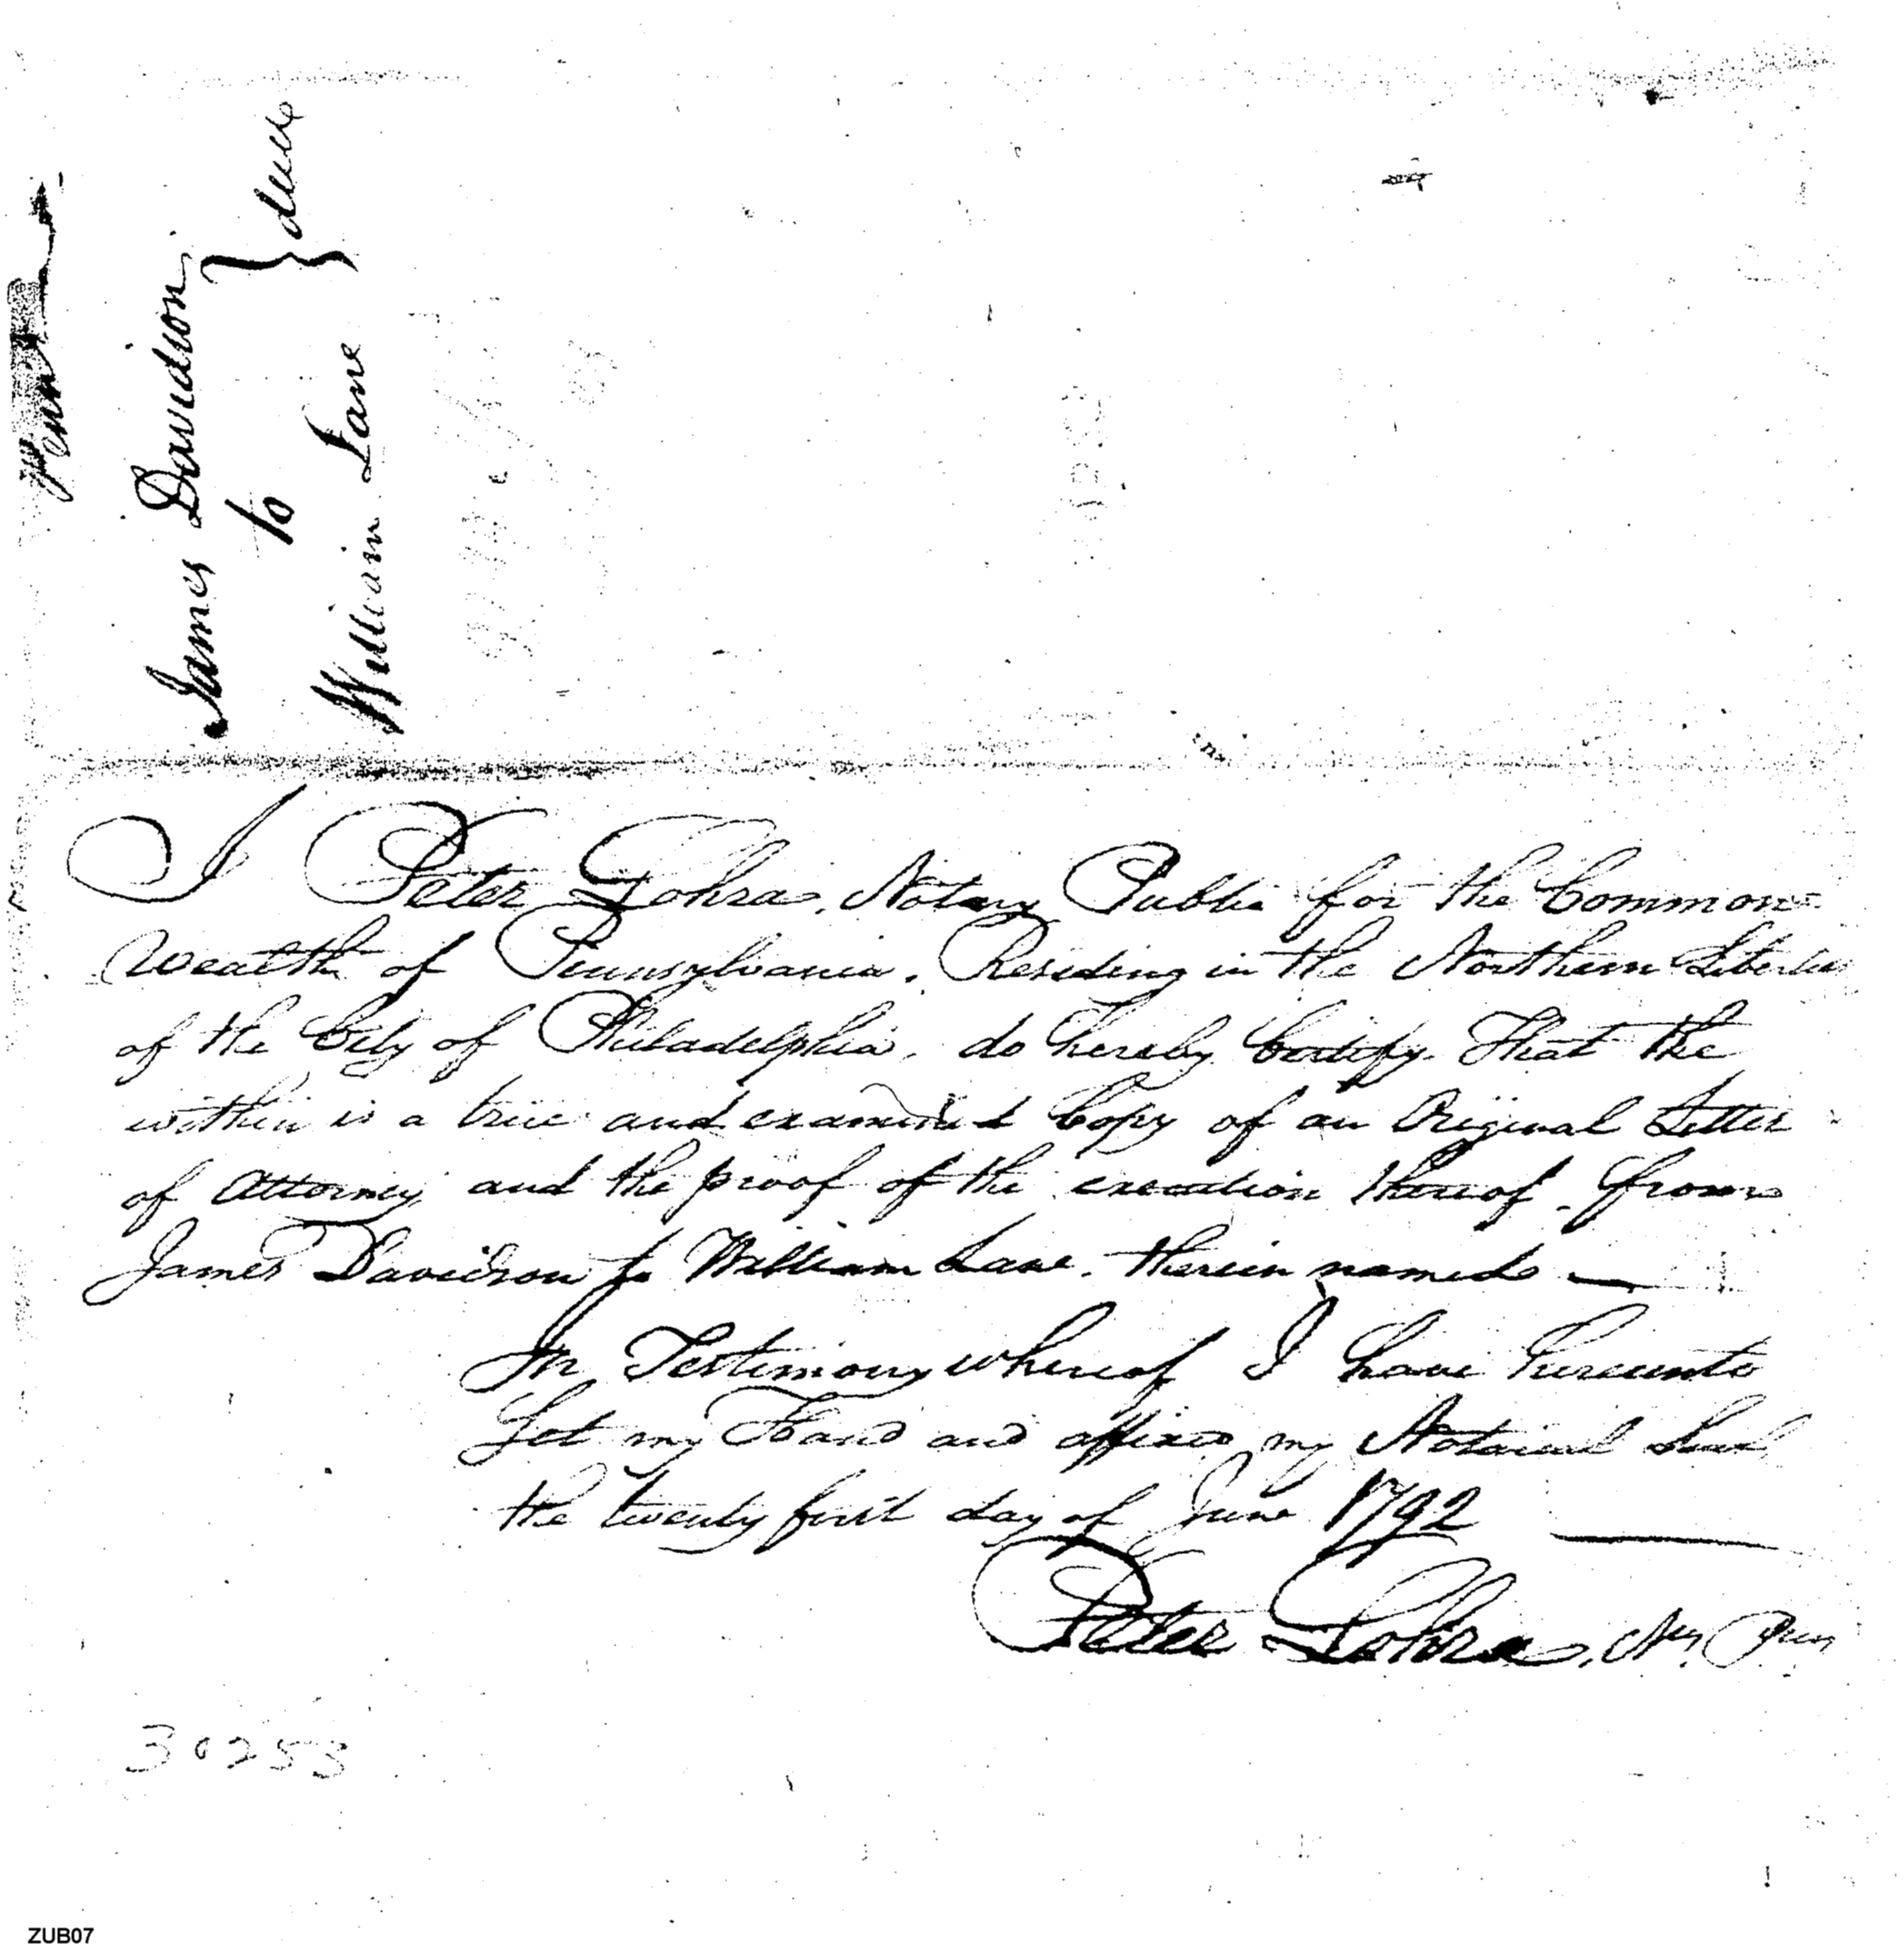 James Davidson
to
William Lane
I Peter Lohra, Notary Public for the Common=
wealth of Pennsylvania. Residing in the Northern Liberties
of the City of Philadelphia, do hereby Certify That the
within is a true and examined Copy of an Original Letter
of Attorney and the proof of the execution thereof from
James Davidson to William Lane. therein named —
In Testimony whereof I have hereunto
Set my Hand and affixed my Notarial Seal
the twenty first day of June 1792 —
Peter Lohra,
30253
ZUB07